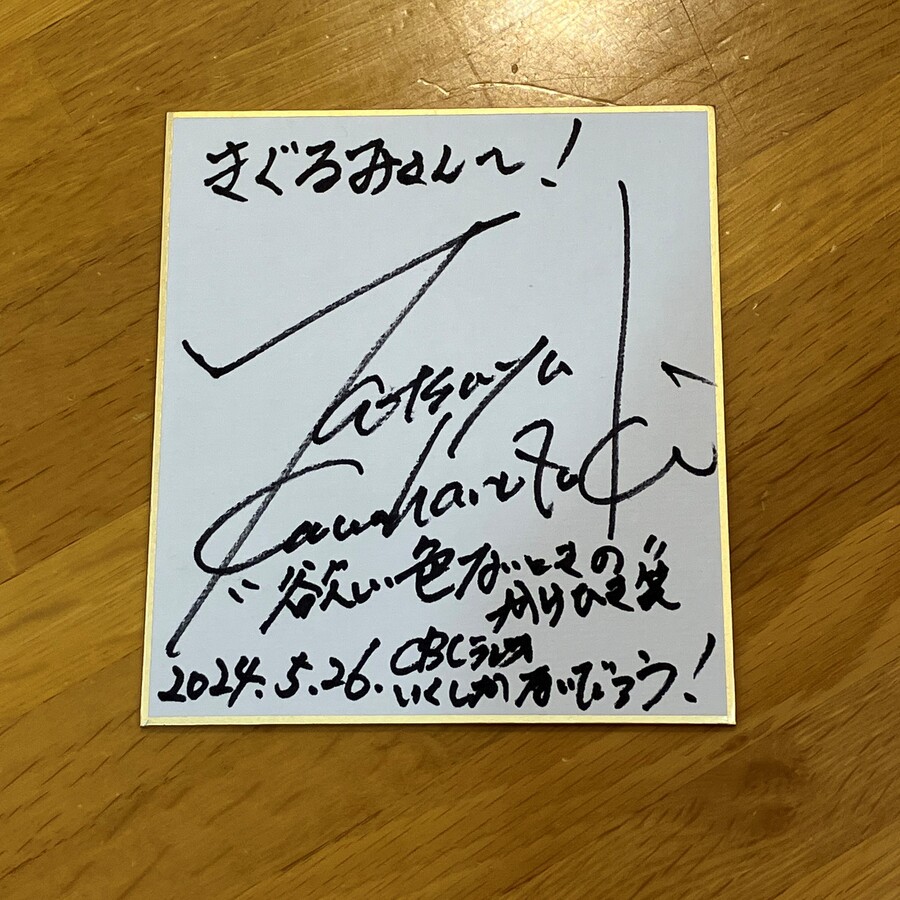 さぐるみさんへ!
Tatsuya
Kawahara
"欲しい色ないときの
かけひき笑"
2024.5.26.
CBCラジオ
いくしかないでしょう!